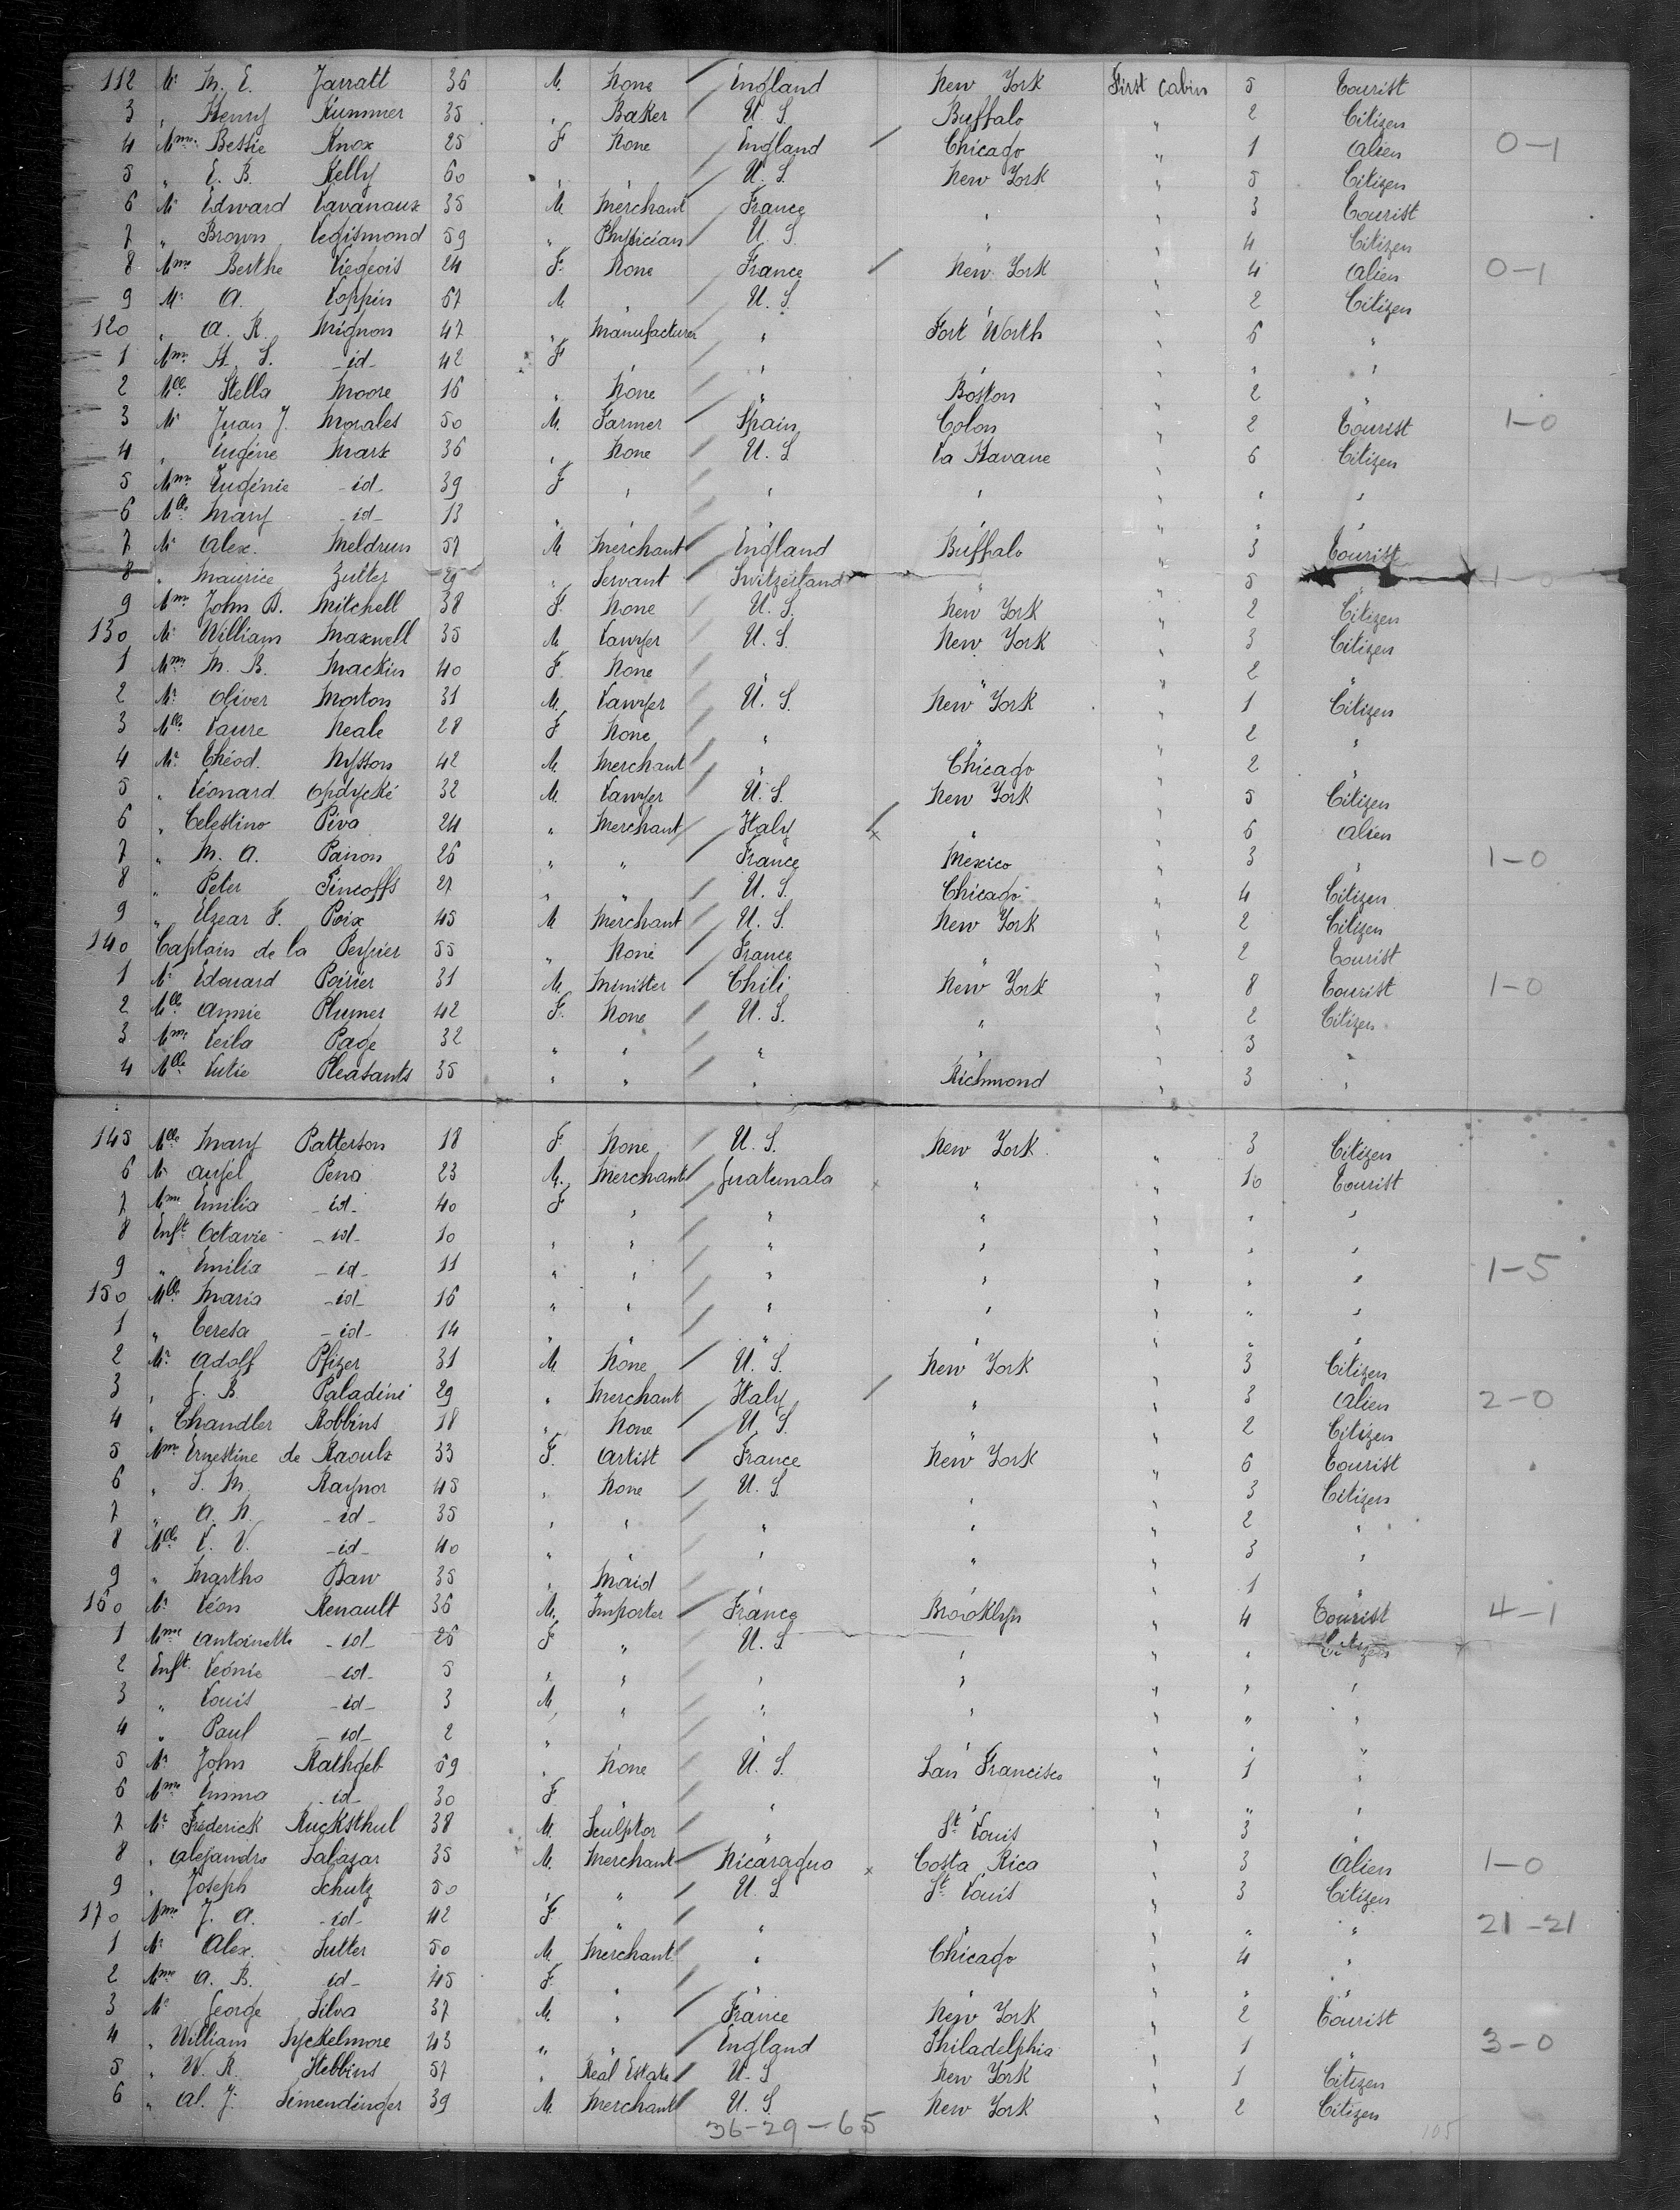 112 Mr M. E. Jarratt 36 M. None England New York First Cabin 5 Tourist
3 " Henry Kummer 35 " Baker U. S. Buffalo " 2 Citizen
4 Mme Bessie Knox 25 F None England Chicago " 1 Alien 0-1
5 " E. B. Kelly 60 " " U. S. New York " 5 Citizen
6 Mr Edward Lavanoux 35 M Merchant France " " 3 Tourist
7 " Brown Legismond 59 " Physician U. S. " " 4 Citizen
8 Mme Berthe Liegeois 24 F. None France New York " 4 Alien 0-1
9 Mr A. Loppin 67 M " U. S. " " 2 Citizen
120 " A. K. Mignon 47 " Manufacturer " Fort Worth " 6 "
1 Mme H. S. -id- 42 F " " " " " "
2 Mlle Stella Moore 16 " None " Boston " 2 "
3 Mr Juan J. Morales 50 M. Farmer Spain Colon " 2 Tourist 1-0
4 " Eugène Marx 36 " None U. S. La Havane " 6 Citizen
5 Mme Eugénie -id- 39 F " " " " " "
6 Mlle Mary -id- 13 " " " " " " "
7 Mr Alex. Meldrum 57 M Merchant England Buffalo " 3 Tourist
8 " Maurice Zutter 29 " Servant Switzerland " " 5 " 1-0
9 Mme John B. Mitchell 38 F. None U. S. New York " 2 Citizen
130 Mr William Maxwell 35 M Lawyer U. S. New York " 3 Citizen
1 Mme M. B. Mackin 40 F. None " " " 2 "
2 Mr Oliver Morton 31 M. Lawyer U. S. New York " 1 Citizen
3 Mlle Laure Neale 28 F None " " " 2 "
4 Mr Théod. Nysson 42 M. Merchant " Chicago " 2 "
5 " Léonard Opdycké 32 M. Lawyer U. S. New York " 5 Citizen
6 " Celestino Piva 24 " Merchant Italy " " 6 Alien
7 " M. A. Panon 26 " " France Mexico " 3 " 1-0
8 " Peter Pincoffs 27 " " U. S. Chicago " 4 Citizen
9 " Elzear F. Poix 45 M Merchant U. S. New York " 2 Citizen
140 Captain de la Peyrier 55 " None France " " 2 Tourist
1 Mr Edouard Poirier 31 M. Minister Chili New York " 8 Tourist 1-0
2 Mlle Annie Plumer 42 F. None U. S. " " 2 Citizen
3 Mme Leila Page 32 " " " " " 3 "
4 Mlle Lutie Pleasants 35 " " " Richmond " 3 "
145 Mlle Mary Patterson 18 F None U. S. New York " 3 Citizen
6 Mr Anjel Pena 23 M. Merchant Guatemala " " 10 Tourist
7 Mme Emilia -id- 40 F " " " " " "
8 Enft Octavie -id- 10 " " " " " " "
9 " Emilia -id- 11 " " " " " " " 1-5
150 Mlle Maria -id- 16 " " " " " " "
1 " Teresa -id- 14 " " " " " " "
2 Mr Adolf Pfizer 31 M None U. S. New York " 3 Citizen
3 " J. B. Paladini 29 " Merchant Italy " " 3 Alien 2-0
4 " Chandler Robbins 18 " None U. S. " " 2 Citizen
5 Mme Ernestine de Raoulx 33 F. Artist France New York " 6 Tourist
6 " S. M. Raynor 45 " None U. S. " " 3 Citizen
7 " A. N. -id- 35 " " " " " 2 "
8 Mlle L. V. -id- 40 " " " " " 3 "
9 " Martha Baw 35 " Maid " " " 1 "
160 Mr Léon Renault 36 M. Importer France Brooklyn " 4 Tourist 4-1
1 Mme Antoinette -id- 26 F " U. S " " " Citizen
2 Enft Léonie -id- 5 " " " " " " "
3 " Louis -id- 3 M " " " " " "
4 " Paul -id- 2 " " " " " " "
5 Mr John Rathgeb 59 " None U. S. San Francisco " 1 "
6 Mme Emma -id- 30 F " " " " " "
7 Mr Frederick Rucksthul 38 M. Sculptor " St Louis " 3 "
8 " Alejandro Salazar 35 M. Merchant Nicaragua Costa Rica " 3 Alien 1-0
9 " Joseph Schutz 50 " " U. S St Louis " 3 Citizen
170 Mme J. A. -id- 42 F. " " " " " " 21-21
1 Mr Alex. Sutter 50 M. Merchant " Chicago " 4 "
2 Mme A. B. id- 45 F. " " " " " "
3 Mr George Silva 37 M. " France New York " 2 Tourist
4 " William Syckelmore 43 " " England Philadelphia " 1 " 3-0
5 " W. R. Stebbins 57 " Real Estate U. S New York " 1 Citizen
6 " Al. J. Simendinger 39 M. Merchant U. S New York " 2 Citizen
36-29-65
105